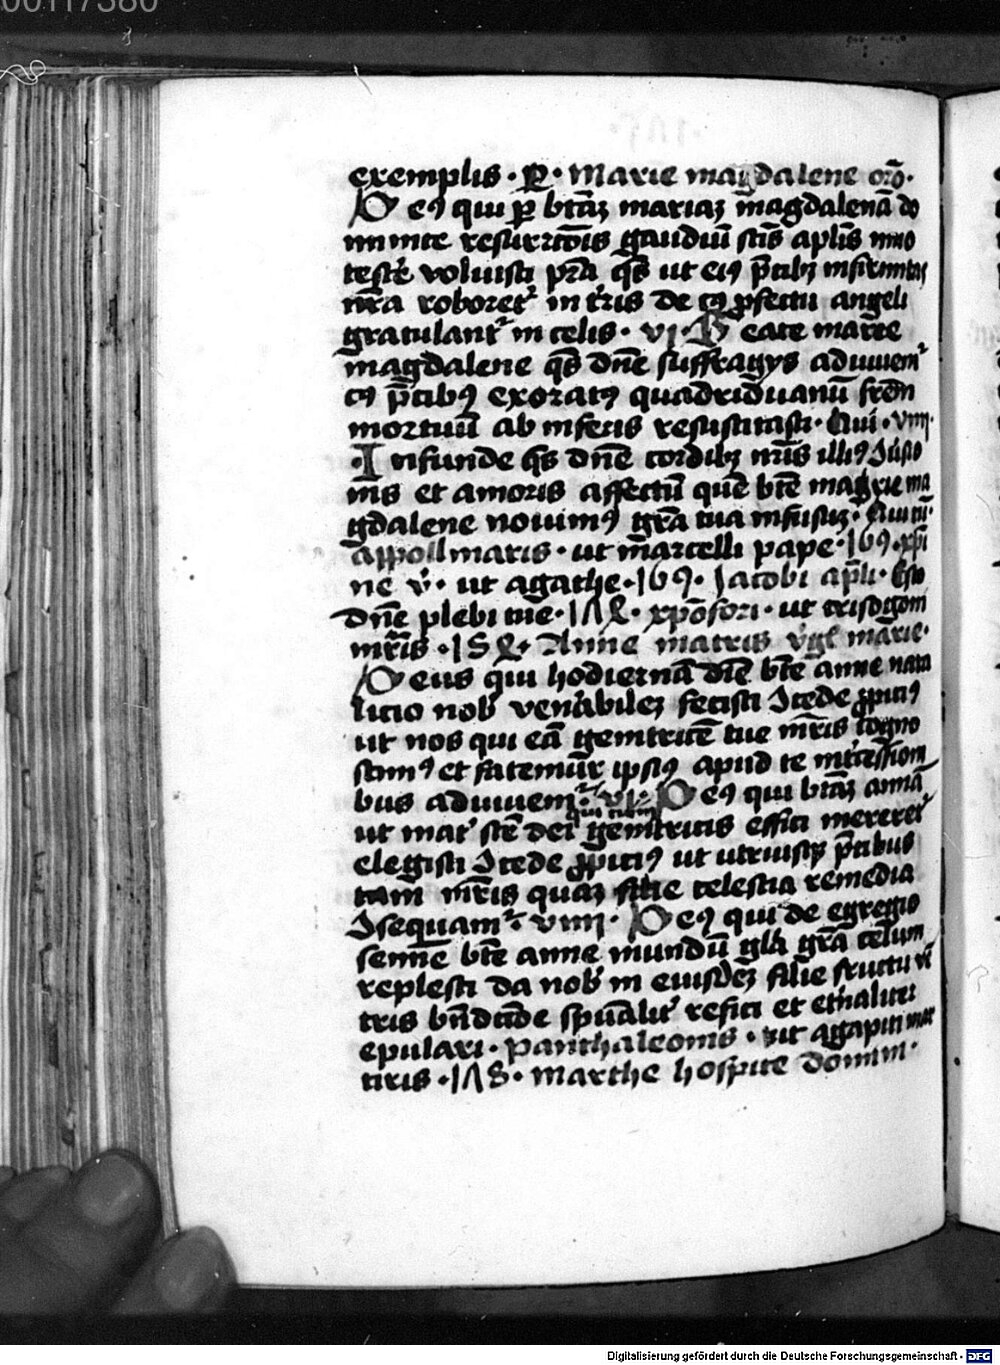 00117380
exemplis · P̱ · Marie magdalene orō·
Deꝯ qui ꝑ btāꝫ mariaꝫ m̄agdalenā do
mi nice resurrcōis gaudiū sctīs aplīs nūo
voluisti pr̄a qs̄ ut eiꝯ p̄cibꝫ infirmitas
nr̄a roboret᷑ in tr̄is de cꝯ ꝓfectu angeli
gratulant᷑ in celis · vj · Beate marie
magdalene qs̄ dn̄e suffragys adiuuem᷑
cꝯ p̄cibꝯ exoratꝯ quadriduanū fr̄em
mortuū ab inferis resuscitasti · Qui · viiij·
·Infunde qs̄ dn̄e cordibꝫ nr̄is illiꝯ
nis et amoris affectū quē btē marie ma
gdalene nouimꝯ gr̄a tua infusuꝫ · Qui tū·
appollinaris · ut m̄arcelli pape · 169 · xp̄i
ne v̄ · ut agathe · 169 · Jacobi apl̄i · Esto
dn̄e plebi tue · 1Λ8 · xp̄ofori · ut crisogoni
mr̄is · 158 · Anne matris v̄ḡ marie·
Deus qui hodiernā diē btē anne nata
licio nob̄ venerabileꝫ fecisti Jcede ꝓpiciꝯ
ut nos qui eā genitricē tue mr̄is cogno
scimꝯ et fatemur ipsiꝯ apud te intercession
bus adiuuem᷑ · vj · Deꝯ qui btāꝫ annā
ut mat᷑ scē dei genitricis effici mereret᷑
elegisti Jcede ꝓpiciꝯ ut utriusqꝫ p̄cibus
tam mr̄is quaꝫ filie celestia remedia
Jsequam᷑ · viiij · Deꝯ qui de egregio
semīe btē anne mundū gl̄a gr̄a
replesti da nob̄ in eiusdeꝫ filie fructu vē
tris bn̄dicto spūalit᷑ refici et et̄naliter
epulari · panthaleonis · ut agapiti mar
tiris · 1Λ8 · marthe hospite domini ·
Digitalisierung gefördert durch die Deutsche Forschungsgemeinschaft - DFG